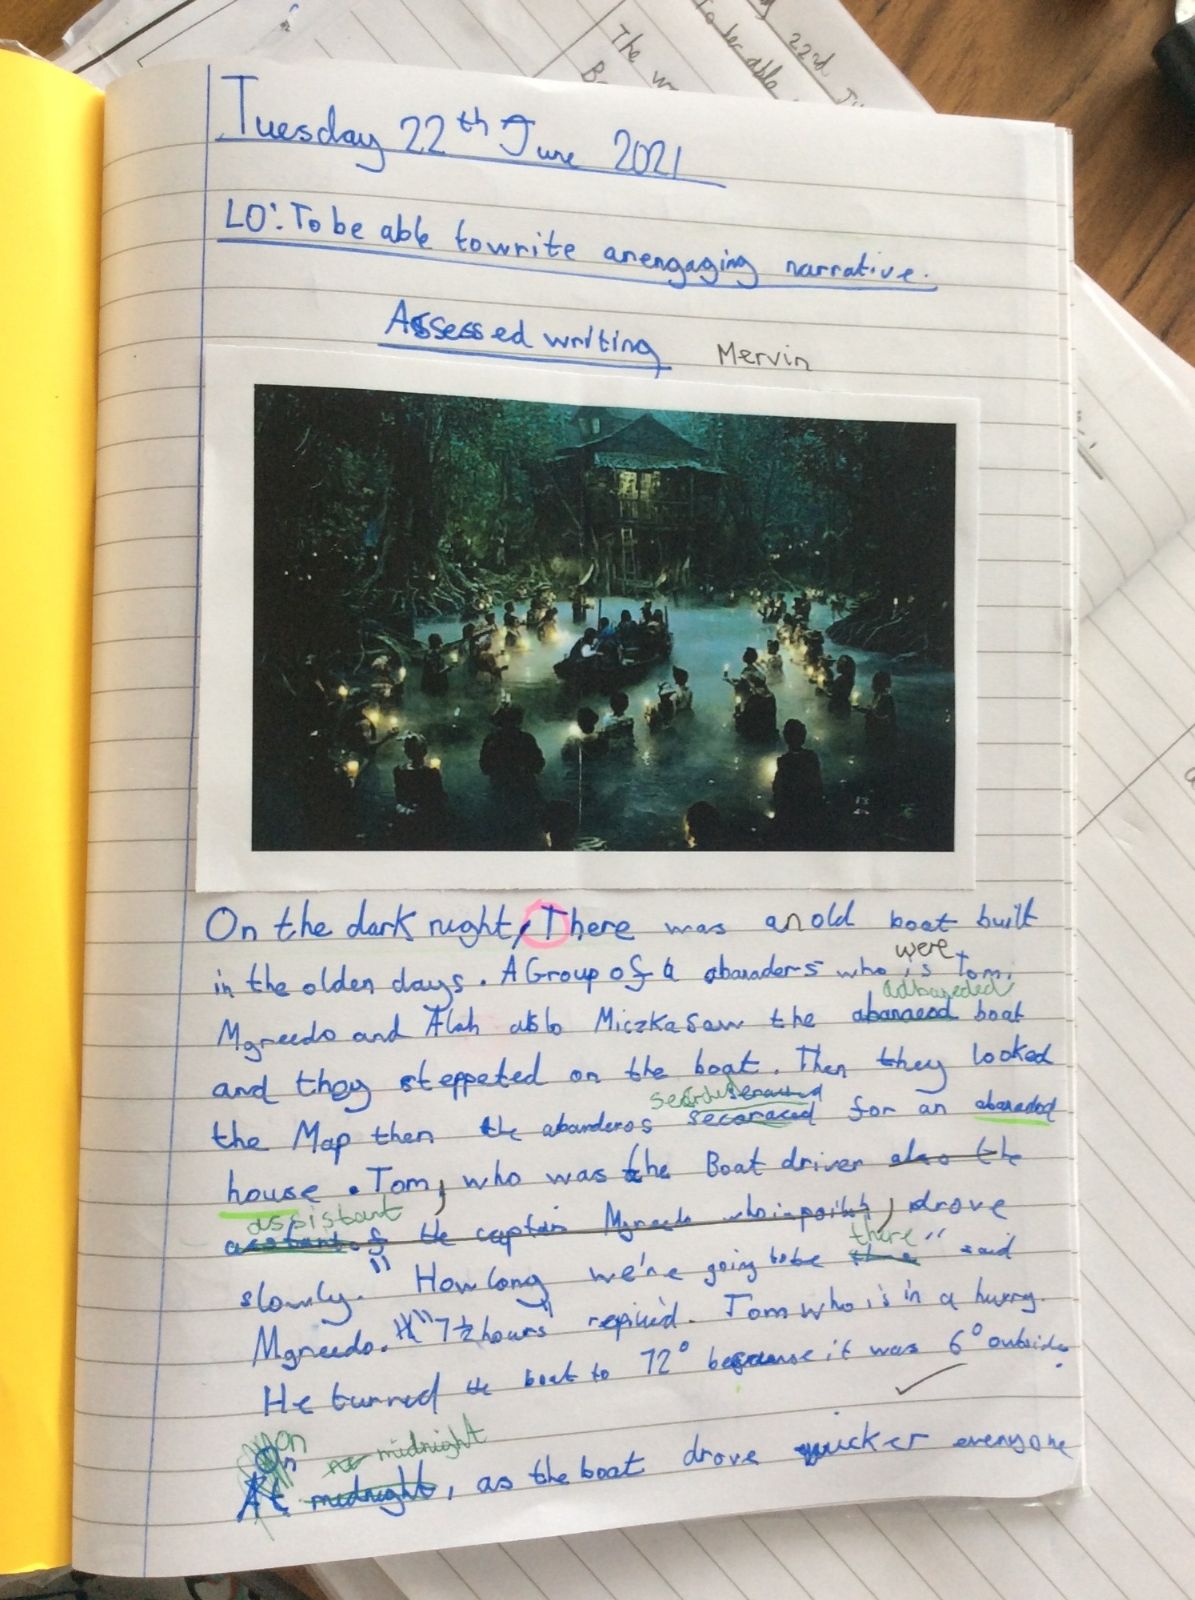 Tuesday 22th June 2021
LO: To be able to write an engaging narrative.
Assessed writing Mervin
On the dark night, There was an old boat built
were
in the olden days. A Group of a abanaders who is Tom,
adbaneded
Mgreedo and Alah also Miczka saw the boat
and they steppeted on the boat. Then they looked
the Map then the abanderos for an abanaded
house. Tom, who was the Boat driver also the
assistant
the captain Mgreedo drove
there
slowly. "How long we're going to be " said
Mgreedo. "7½ hours" repiied. Tom who is in a hurry.
He turned the boat to 72° because it was 6° outside.
on midnight
At midnight, as the boat drove quicker everyone
22nd
To be able
The